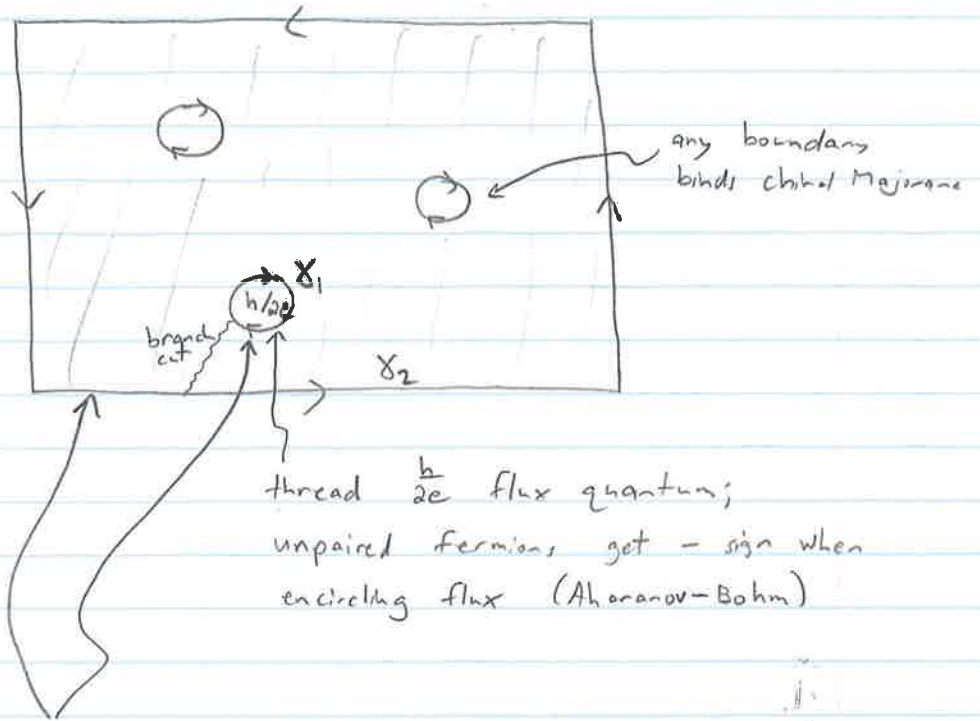 any boundary
binds chiral Majorana
γ₁
h/2e
branch
cut
γ₂
thread h/2e flux quantum;
unpaired fermions get - sign when
encircling flux (Aharanov-Bohm)